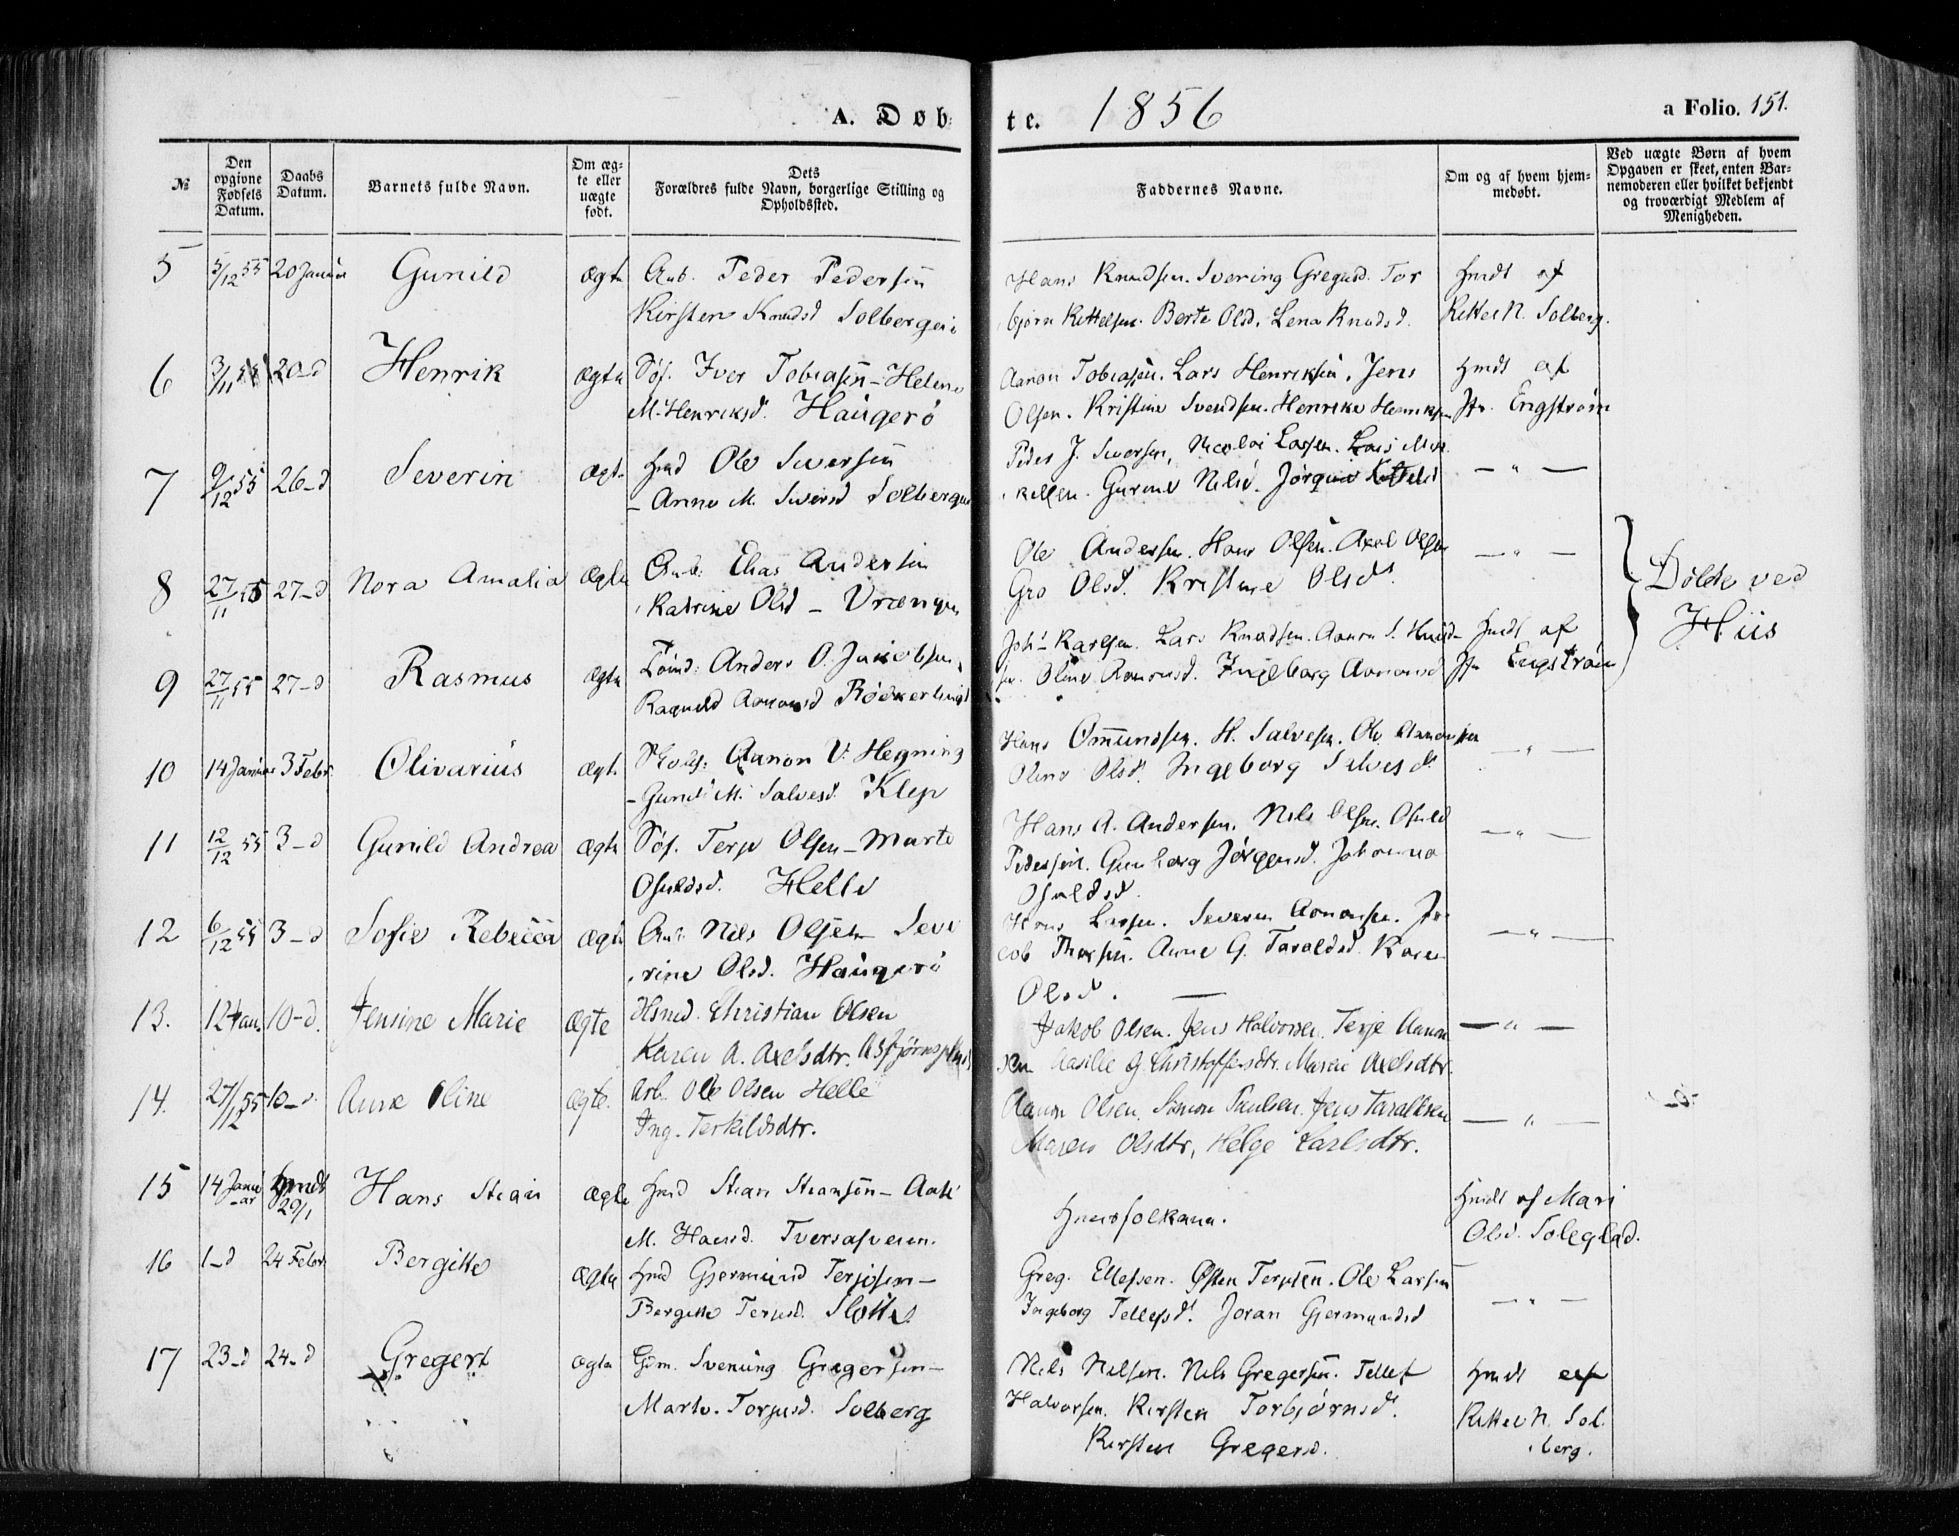 A. Døb- te. 1856 a Folio. 151.
№ Den opgivne Fødsels Datum. Daabs Datum. Barnets fulde Navn. Om ægte eller uægte født. Dets Forældres fulde Navn, borgerlige Stilling og Opholdssted. Faddernes Navne. Om og af hvem hjemmedøbt. Ved uægte Børn af hvem Opgaven er skeet, enten Barnemoderen eller hvilket bekjendt og troværdigt Medlem af Menigheden.
5 5/12 55 20 Januar Gunild ægte Arb. Peder Pedersen Hans Knudsen. Svening Gregersd. Tor hmdt af
Kirsten Knudsd Solberg bjørn Kettelsen. Berte Olsd. Lena Knudsd. Kittel N. Solberg.
6 3/11 55 20-d Henrik ægte Søf. Iver Tobiasen - Helene Aanon Tobiasen. Lars Henriksen. Jens hmdt af
M. Henriksd. Haugerö Olsen. Kristine Svendsen. Henrike Henriksen Jfr. Engstrøm
7 9/12 55 26-d Severin ægte hmd Ole Iversen Peder J. Iversen, Nicolai Larsen. Lars Mik
- Anne M. Iversd kelsen. Gurine Nilsd. Jørgine Kettelsd — „ —
8 27/11 55 27-d Nora Amalia ægte Arb: Elias Andersen Ole Andersen. Hans Olsen. Axel Olsen — „ — Døbte ved
Katrine Olsd - Vrængen Gro Olsd. Kristine Olsd. Hiis
9 27/11 55 27-d Rasmus ægte Anders O. Jakobsen Joh. Karlsen. Lars Knudsen. Aanon S. hmdt af
Ragnild Aanonsd Oline Aanonsd. Ingeborg Aanonsd Jfr Engstrøm
10 14 Januar 3 Febr. Olivarius ægte Aanon V. Hegning Hans Omundsen. H. Salvesen. Ole Aanonsen — „ —
- Gunild M. Salvesd. Klep Oline Olsd. Ingeborg Salvesd.
11 12/12 55 3-d Gunild Andrea ægte Søf. Terje Olsen - Marte Hans A. Andersen. Nils Olsen. Osuld — „ —
Osuldsd. Helle Pedersen. Gunborg Jørgensd. Johanna
Osuldsd.
12 6/12 55 3-d Sofie Rebecca ægte Arb. Nils Olsen Seve Hans Larsen. Severin Aanonsen. Ja — „ —
rine Olsd. Haugerö cob Thorsen. Anne G. Taraldsd. Karen
Olsd.
13. 12 Jan. 10-d. Jensine Marie ægte Hsmd. Christian Olsen Jakob Olsen. Jens Halvorsen. Terje Aanon — „ —
Karen A. Axelsdtr. sen Aasille G. Christoffersdtr. Maren Axelsdtr.
14. 27/12 55 10-d. Anne Oline ægte. Arb. Ole Olsen Helle Aanon Olsen. Simon Paulsen. Jens Taraldsen — „ —
Ing. Terkildsdtr. Maren Olsdtr, Helge Karlsdtr.
15 14 Janu ar hmdt 29/1 Hans Stian ægte hmd Stian Stiansen - hmdt af Mari
M. Hansd. Huusfolkene. Olsd. Soleglad.
16 1-d 24 Febr. Bergitte ægte hmd Gjermund Terjesen - Greg. Ellefsen. Østen Terjesen. Ole Larsen
Bergitte Terjesd. Slotte Ingeborg Tellefsd. Joran Gjermundsd — „ —
17 23-d 24-d Gregert ægte Gdm. Svenung Gregersen - Nils Nilsen. Nils Gregersen. Tellef hmdt af
Marte Torjusd. Solberg Halvorsen. Kirsten Torbjørnsd. Kittel N. Sol
Kirsten Gregersd. berg.